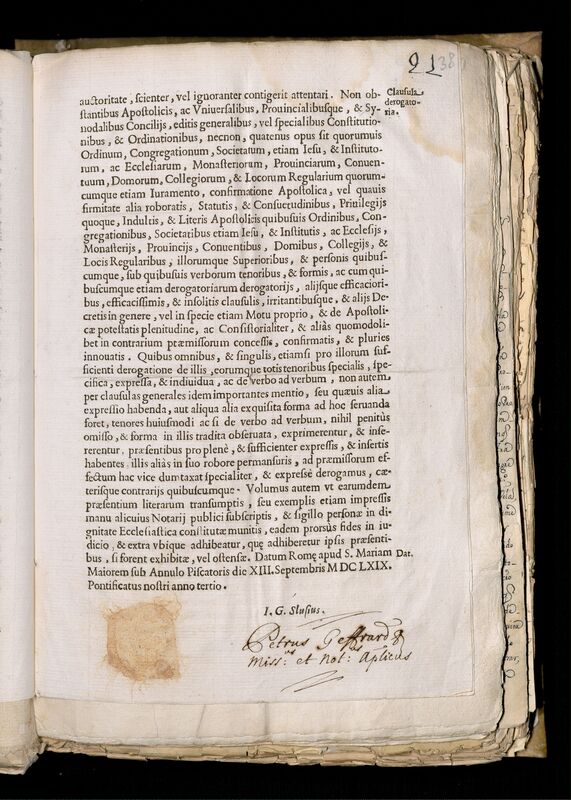 91 38
auctoritate, scienter, vel ignoranter contigerit attentari. Non ob-
Clausula derogatoria.
stantibus Apostolicis, ac Vniuersalibus, Prouincialibusque, & Sy-
nodalibus Concilijs, editis generalibus, vel specialibus Constitutio-
nibus, & Ordinationibus, necnon, quatenus opus sit quorumuis
Ordinum, Congregationum, Societatum, etiam Iesu, & Instituto-
rum, ac Ecclesiarum, Monasteriorum, Prouinciarum, Conuen-
tuum, Domorum, Collegiorum, & Locorum Regularium quorum-
cumque etiam Iuramento, confirmatione Apostolica, vel quauis
firmitate alia roboratis, Statutis, & Consuetudinibus, Priuilegijs
quoque, Indultis, & Literis Apostolicis quibusuis Ordinibus, Con-
gregationibus, Societatibus etiam Iesu, & Institutis, ac Ecclesijs,
Monasterijs, Prouincijs, Conuentibus, Domibus, Collegijs, &
Locis Regularibus, illorumque Superioribus, & personis quibus-
cumque, sub quibusuis verborum tenoribus, & formis, ac cum qui-
buscumque etiam derogatoriarum derogatorijs, alijsque efficaciori-
bus, efficacissimis, & insolitis clausulis, irritantibusque, & alijs De-
cretis in genere, vel in specie etiam Motu proprio, & de Apostoli-
cæ potestatis plenitudine, ac Consistorialiter, & aliàs quomodoli-
bet in contrarium præmissorum concessis, confirmatis, & pluries
innouatis. Quibus omnibus, & singulis, etiamsi pro illorum suf-
ficienti derogatione de illis, eorumque totis tenoribus specialis, spe-
cifica, expressa, & indiuidua, ac de verbo ad verbum, non autem
per clausulas generales idem importantes mentio, seu quæuis alia
expressio habenda, aut aliqua alia exquisita forma ad hoc seruanda
foret, tenores huiusmodi ac si de verbo ad verbum, nihil penitùs
omisso, & forma in illis tradita obseruata, exprimerentur, & inse-
rerentur, præsentibus pro plenè, & sufficienter expressis, & insertis
habentes, illis aliàs in suo robore permansuris, ad præmissorum ef-
fectum hac vice dumtaxat specialiter, & expressè derogamus, cæ-
terisque contrarijs quibuscumque. Volumus autem vt earumdem
præsentium literarum transumptis, seu exemplis etiam impressis
manu alicuius Notarij publici subscriptis, & sigillo personæ in di-
gnitate Ecclesiastica constitutæ munitis, eadem prorsùs fides in iu-
dicio, & extra vbique adhibeatur, quę adhiberetur ipsis præsenti-
bus, si forent exhibitæ, vel ostensæ. Datum Romę apud S. Mariam
Dat.
Maiorem sub Annulo Piscatoris die XIII. Septembris M DC LXIX.
Pontificatus nostri anno tertio.
I. G. Slusius.
Petrus Geffrard
Miss:us et Not:us Aplicus